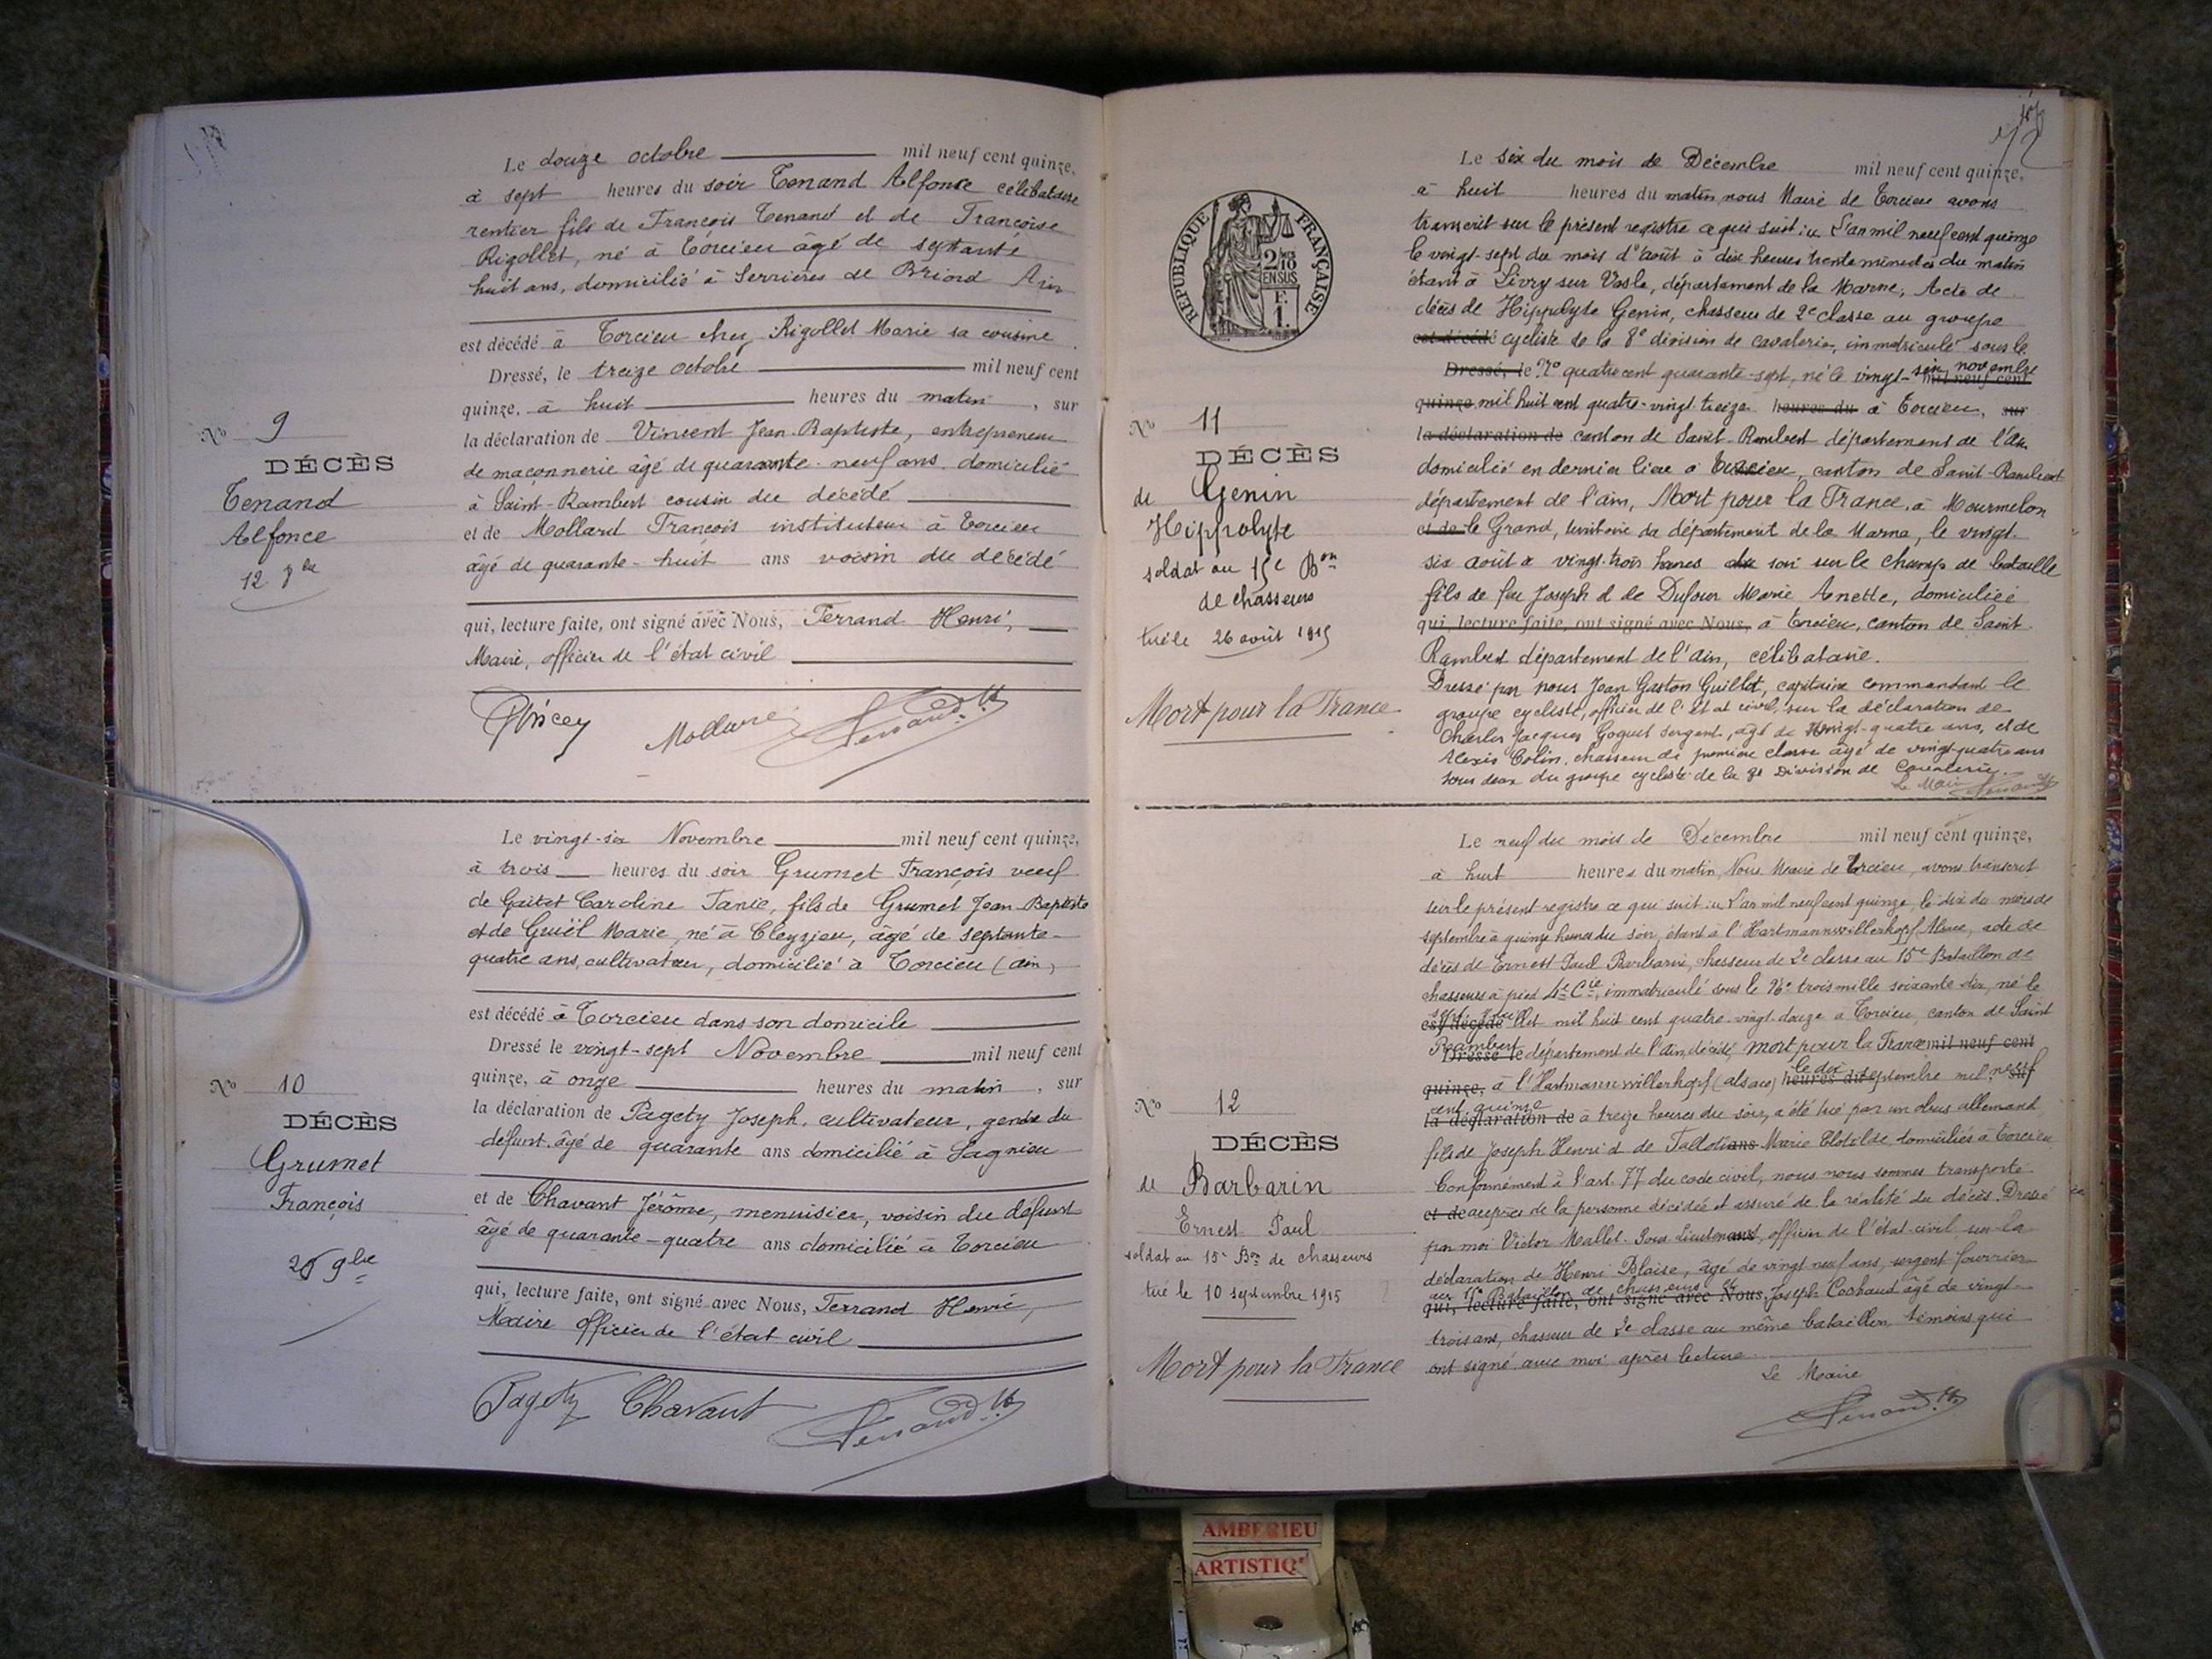 Le douze octobre mil neuf cent quinze,
à sept heures du soir Tenand Alfonce célibataire
rentier fils de François Tenand et de Françoise
Rigollet, né à Torcieu âgé de septante
huit ans, domicilié à Serrières de Briord Ain
est décédé à Torcieu chez Rigollet Marie sa cousine
Dressé, le treize octobre mil neuf cent
quinze, à huit heures du matin, sur
la déclaration de Vincent Jean-Baptiste, entrepreneur
de maçonnerie âgé de quarante-neuf ans domicilié
à Saint-Rambert cousin du décédé
et de Mollard François instituteur à Torcieu
âgé de quarante-huit ans voisin du décédé
qui, lecture faite, ont signé avec Nous, Ferrand Henri,
Maire, officier de l'état civil
No 9
DÉCÈS
Tenand
Alfonce
12 8bre
Le vingt-six Novembre mil neuf cent quinze,
à trois heures du soir Grumet François veuf
de Caroline Tanie, fils de Grumet Jean-Baptiste
et de Guiël Marie, né à Cleyzieu, âgé de septante-
quatre ans, cultivateur, domicilié à Torcieu (ain)
est décédé à Torcieu dans son domicile
Dressé le vingt-sept Novembre mil neuf cent
quinze, à onze heures du matin, sur
la déclaration de Pagety Joseph, cultivateur, gendre du
défunt âgé de quarante ans domicilié à Lagnieu
et de Chavant Jérôme, menuisier, voisin du défunt
âgé de quarante-quatre ans domicilié à Torcieu
qui, lecture faite, ont signé avec Nous, Ferrand Henri,
Maire officier de l'état civil
Pagety Chavant Ferrand H.
No 10
DÉCÈS
Grumet
François
26 9bre
Le six du mois de Décembre mil neuf cent quinze,
à huit heures du matin, nous Maire de Torcieu avons
transcrit sur le présent registre ce qui suit : L'an mil neuf cent quinze
le vingt-sept du mois d'août à dix heures trente minutes du matin
étant à Livry sur Vesle, département de la Marne, Acte de
décès de Hippolyte Genin, chasseur de 2e classe au groupe
est décédé cycliste de la 8e division de cavalerie, immatriculé sous le
Dressé, le No quatre cent quarante-sept, né le vingt-six novembre mil neuf cent
quinze mil huit cent quatre-vingt-treize heures du à Torcieu, sur
la déclaration de canton de Saint-Rambert département de l'Ain
domicilié en dernier lieu à Torcieu, canton de Saint-Rambert
département de l'ain, Mort pour la France, à Mourmelon
et de le Grand, territoire du département de la Marne, le vingt-
six août à vingt-trois heures du soir sur le champ de bataille
fils de feu Joseph et de Dufour Marie Anette, domiciliée
qui, lecture faite, ont signé avec Nous, à Torcieu, canton de Saint
Rambert département de l'ain, célibataire.
Dressé par nous Jean Gaston Guillot, capitaine commandant le
groupe cycliste, officier de l'état civil, sur la déclaration de
Charles Jacques Goguet sergent, âgé de vingt-quatre ans, et de
Alexis Colin, chasseur de première classe âgé de vingt-quatre ans
tous deux du groupe cycliste de la 8e Division de Cavalerie.
Le Maire
RÉPUBLIQUE FRANÇAISE
2/10 EN SUS
F. 1.
No 11
DÉCÈS
de Genin
Hippolyte
soldat au 15e Bon
de chasseurs
tué le 26 août 1915
Mort pour la France
Le neuf du mois de Décembre mil neuf cent quinze,
à huit heures du matin, Nous Maire de Torcieu, avons transcrit
sur le présent registre ce qui suit : L'an mil neuf cent quinze, le dix du mois de
septembre à quinze heures du soir, étant à l'Hartmannswillerkopf Alsace, acte de
décès de Ernest Paul Barbarin, chasseur de 2e classe au 15e Bataillon de
chasseurs à pied 4e Cie, immatriculé sous le No trois mille soixante dix, né le
est décédé Juillet mil huit cent quatre-vingt-douze à Torcieu, canton de Saint
Rambert Dressé le département de l'ain, décédé, mort pour la France mil neuf cent
quinze, à l'Hartmannwillerkopf (alsace) heures du le dix septembre mil neuf sur
cent quinze la déclaration de à treize heures du soir, a été tué par un obus allemand
fils de Joseph Henri et de ans Marie Clotilde domiciliés à Torcieu
Conformément à l'art. 77 du code civil, nous nous sommes transporté
et de auprès de la personne décédée et assuré de la réalité du décès. Dressé
par moi Victor Mallet Sous Lieutenant, officier de l'état-civil, sur la
déclaration de Henri Blaise, âgé de vingt neuf ans, sergent fourrier
au 15e Bataillon de chasseurs et qui, lecture faite, ont signé avec Nous, Joseph Cochaud âgé de vingt-
trois ans, chasseur de 2e classe au même bataillon, témoins qui
ont signé avec moi après lecture
Le Maire
Ferrand H.
No 12
DÉCÈS
de Barbarin
Ernest Paul
soldat au 15e Bon de chasseurs
tué le 10 septembre 1915
Mort pour la France
AMBERIEU
ARTISTIQ